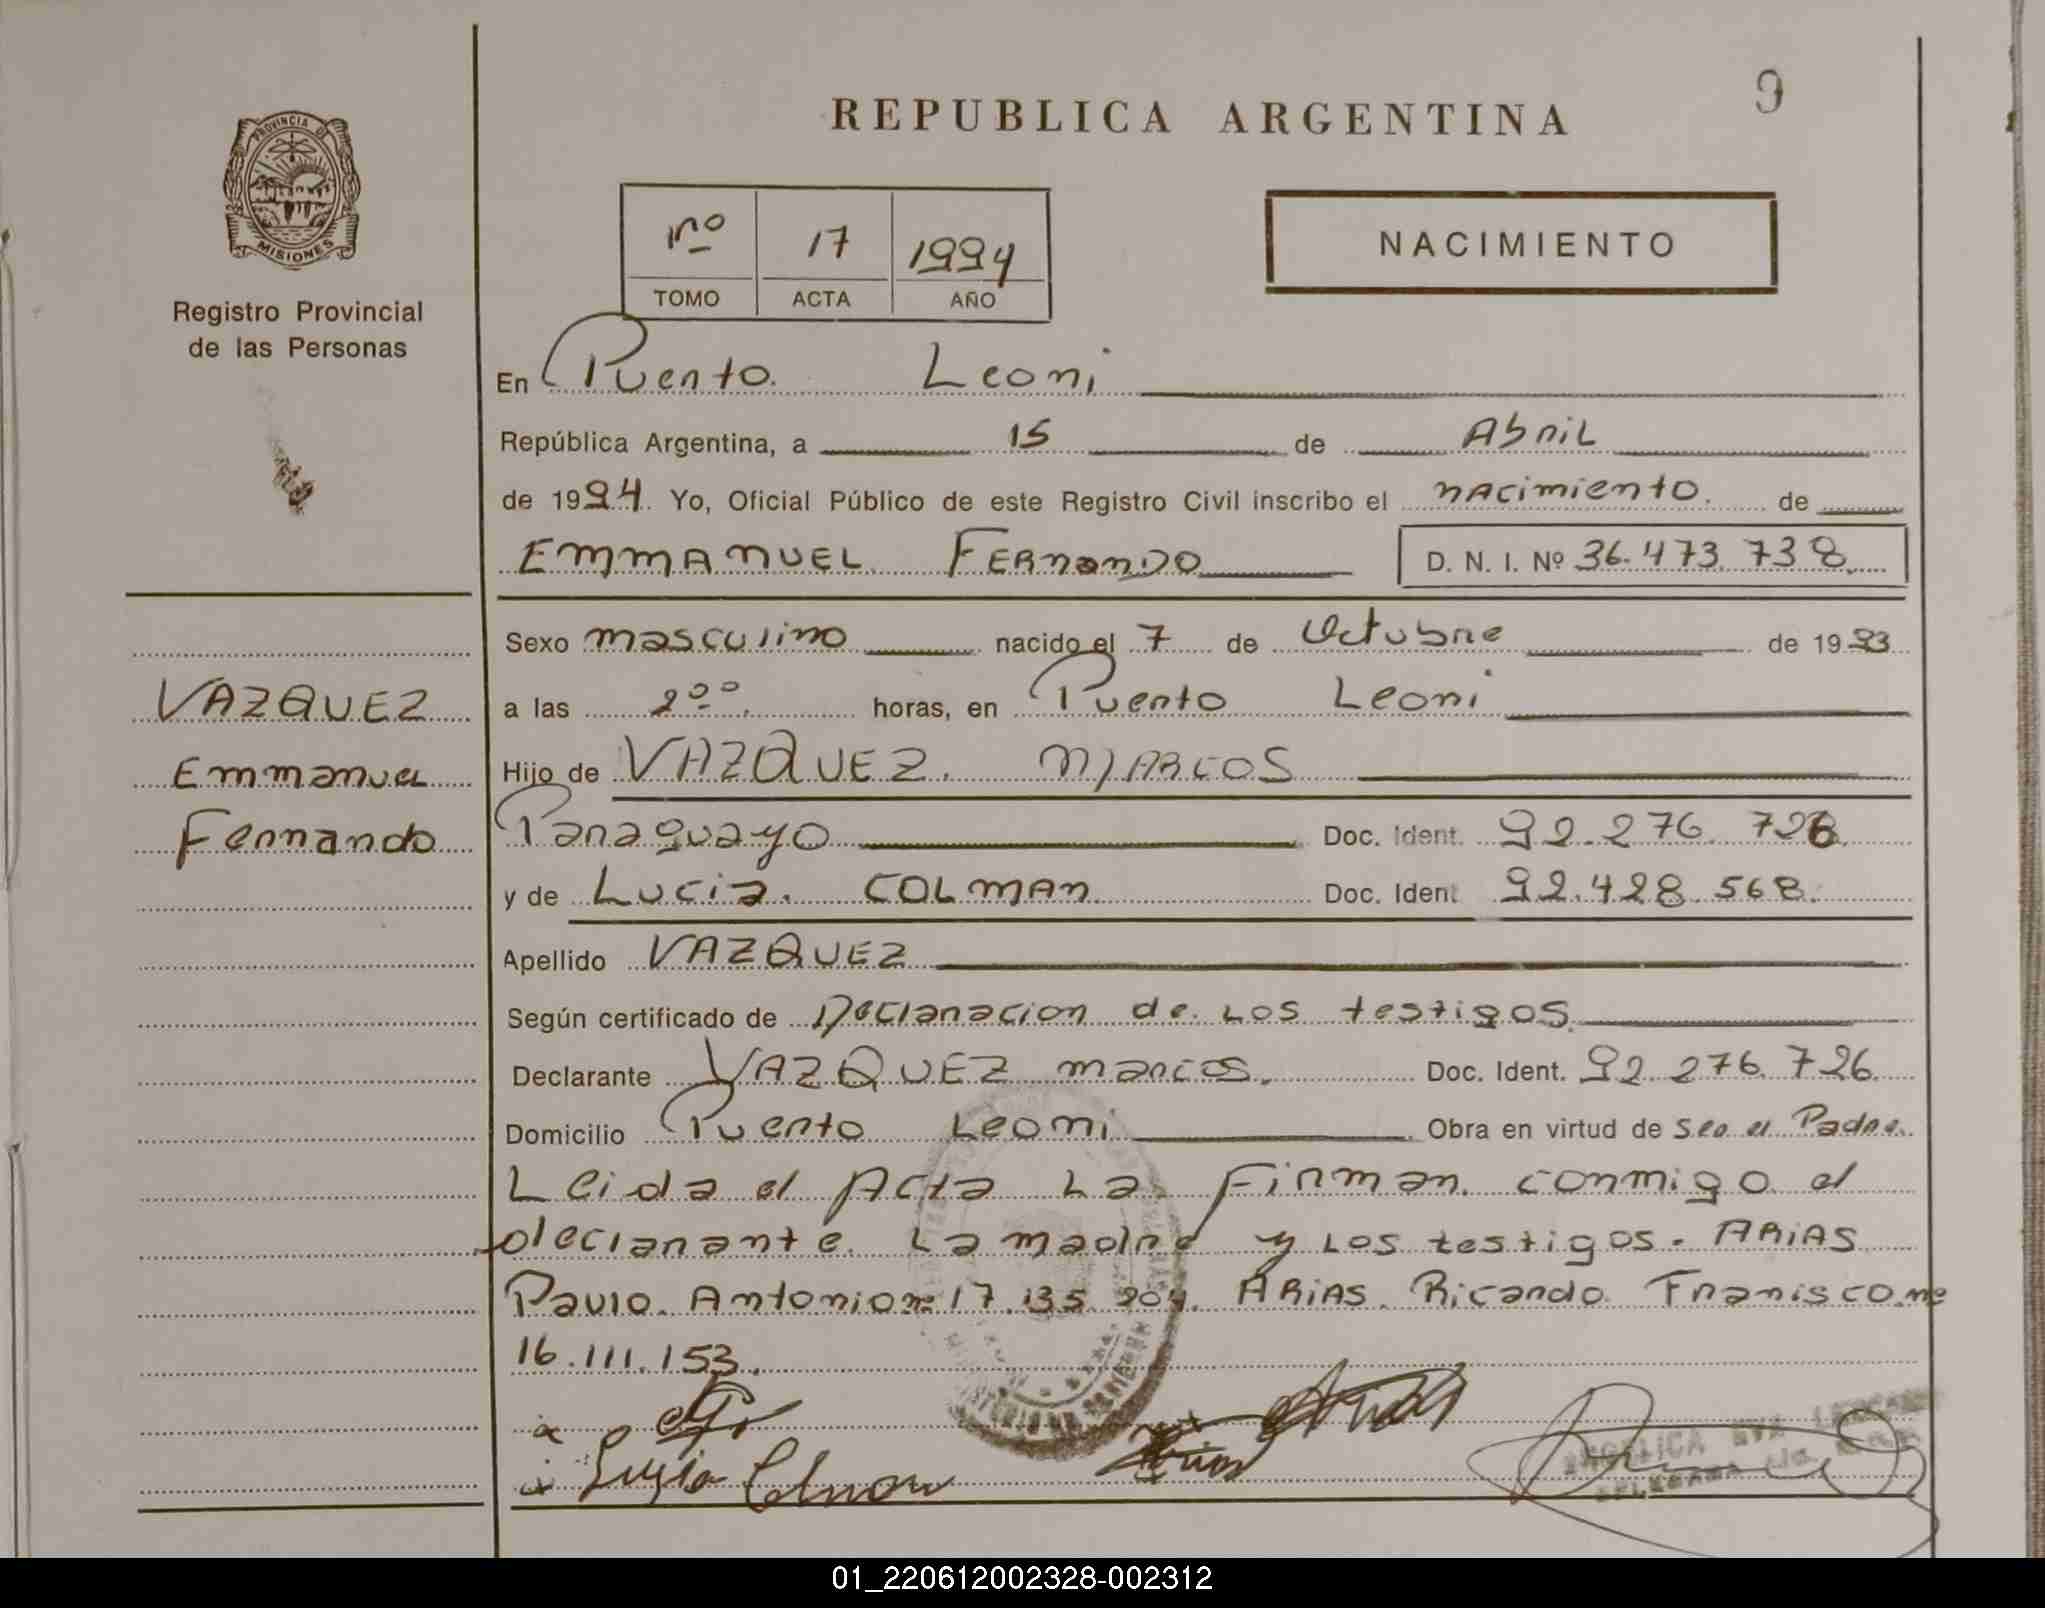 9
REPUBLICA ARGENTINA
PROVINCIA DE
MISIONES
Registro Provincial
de las Personas
nº 17 1994
TOMO ACTA AÑO
NACIMIENTO
En Puerto Leoni
República Argentina, a 15 de Abril
de 1994. Yo, Oficial Público de este Registro Civil inscribo el nacimiento. de
EMMANUEL FERNANDO D. N. I. Nº 36.473.738
Sexo masculino nacido el 7 de Octubre de 1993
a las 2ºº horas, en Puerto Leoni
Hijo de VAZQUEZ. MARCOS
Paraguayo Doc. Ident. 92.276.726
y de Lucia. COLMAN Doc. Ident 92.428.568.
Apellido VAZQUEZ
Según certificado de Declaracion de Los testigos
Declarante VAZQUEZ marcos. Doc. Ident. 92.276.726
Domicilio Puerto Leoni Obra en virtud de ser el Padre.
Leida el Acta La Firman conmigo el
declarante La madre y Los testigos. ARIAS
Paulo Antonio nº 17.135.204. ARIAS Ricardo Franisco nº
16.111.153.
VAZQUEZ
Emmanuel
Fernando
01_220612002328-002312